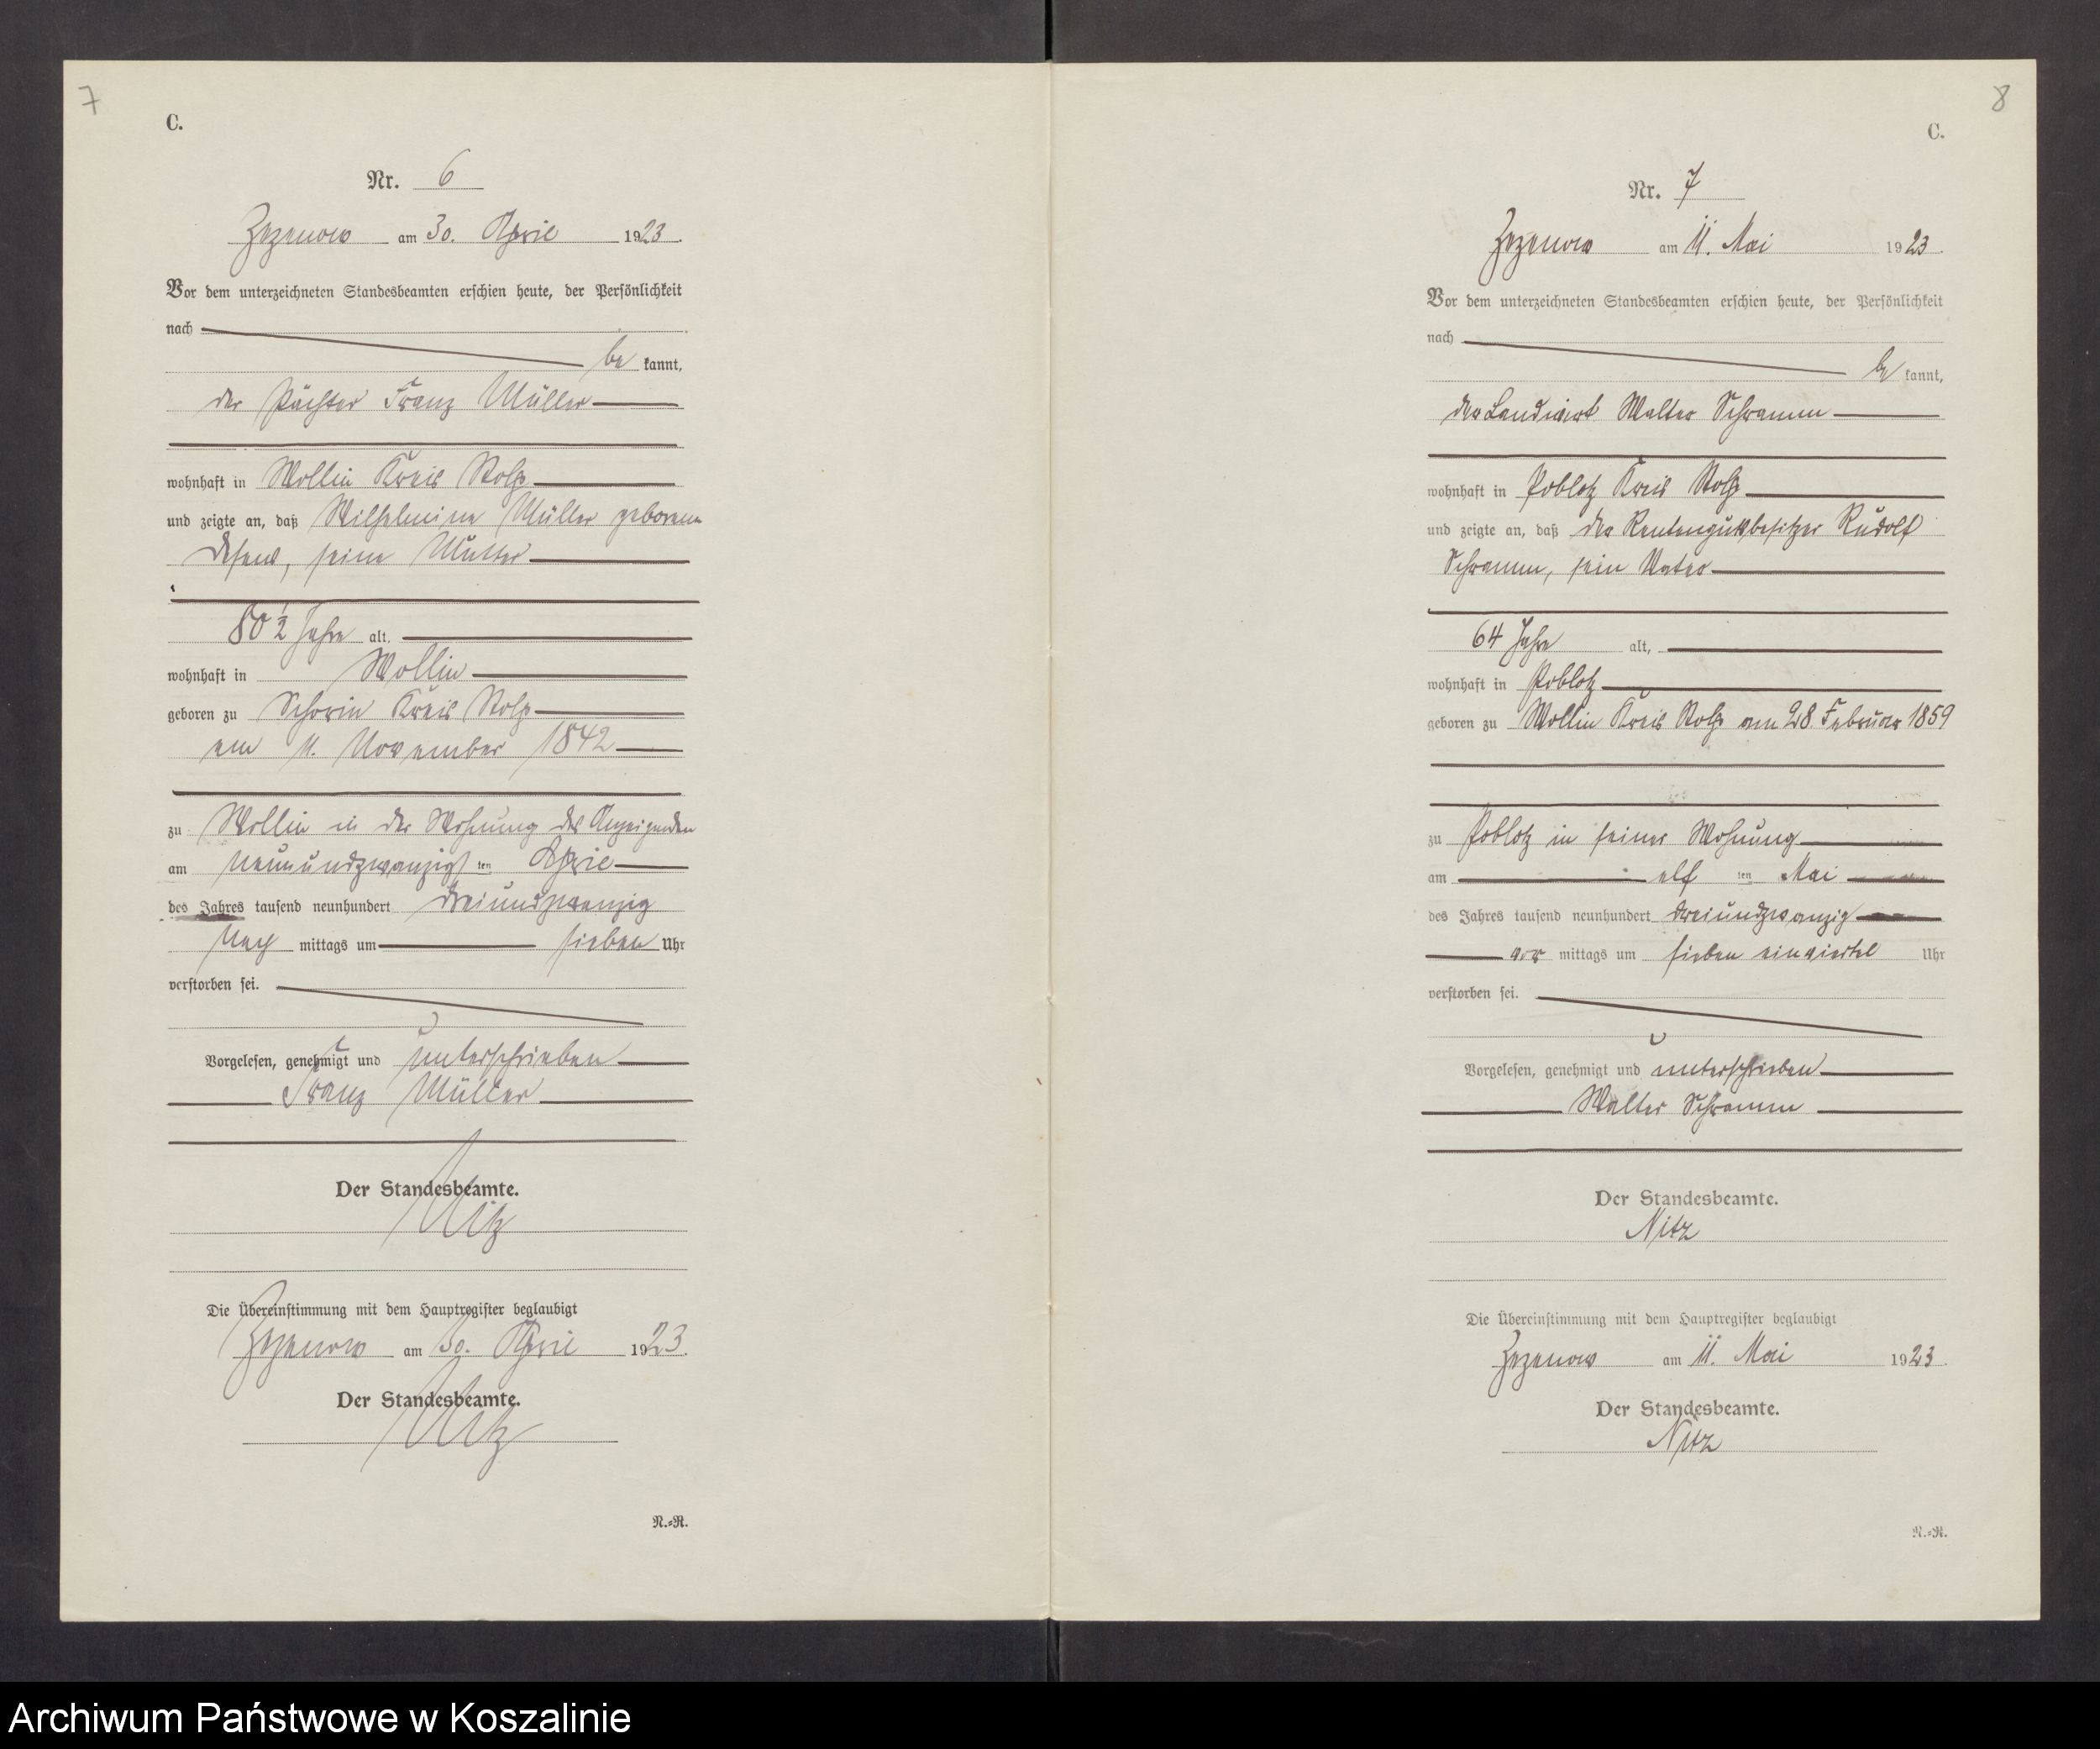 7
C.
Nr. 6
Zezenow am 30. April 1923.
Vor dem unterzeichneten Standesbeamten erschien heute, der Persönlichkeit
nach
be kannt,
der Pächter Franz Müller
wohnhaft in Wollin Kreis Stolp
und zeigte an, daß Wilhelmine Müller geborene
seine Mutter
80 1/2 Jahre alt,
wohnhaft in Wollin
geboren zu Schorin Kreis Stolp
am 11. November 1842
zu Wollin in der Wohnung des Anzeigenden
am neunundzwanzigsten April
des Jahres tausend neunhundert dreiundzwanzig
Nach mittags um sieben Uhr
verstorben sei.
Vorgelesen, genehmigt und unterschrieben
Franz Müller
Der Standesbeamte.
Nitz
Die Übereinstimmung mit dem Hauptregister beglaubigt
Zezenow am 30. April 1923.
Der Standesbeamte.
Nitz
N.=R.
8
C.
Nr. 7
Zezenow am 11. Mai 1923.
Vor dem unterzeichneten Standesbeamten erschien heute, der Persönlichkeit
nach
be kannt,
der Landwirt Walter Schramm
wohnhaft in Poblotz Kreis Stolp
und zeigte an, daß der Rentengutsbesitzer Rudolf
Schramm, sein Vater
64 Jahre alt,
wohnhaft in Poblotz
geboren zu Wollin Kreis Stolp am 28. Februar 1859
zu Poblotz in seiner Wohnung
am elf ten Mai
des Jahres tausend neunhundert dreiundzwanzig
vor mittags um sieben einviertel Uhr
verstorben sei.
Vorgelesen, genehmigt und unterschrieben
Walter Schramm
Der Standesbeamte.
Nitz
Die Übereinstimmung mit dem Hauptregister beglaubigt
Zezenow am 11. Mai 1923.
Der Standesbeamte.
Nitz
N.=R.
Archiwum Państwowe w Koszalinie